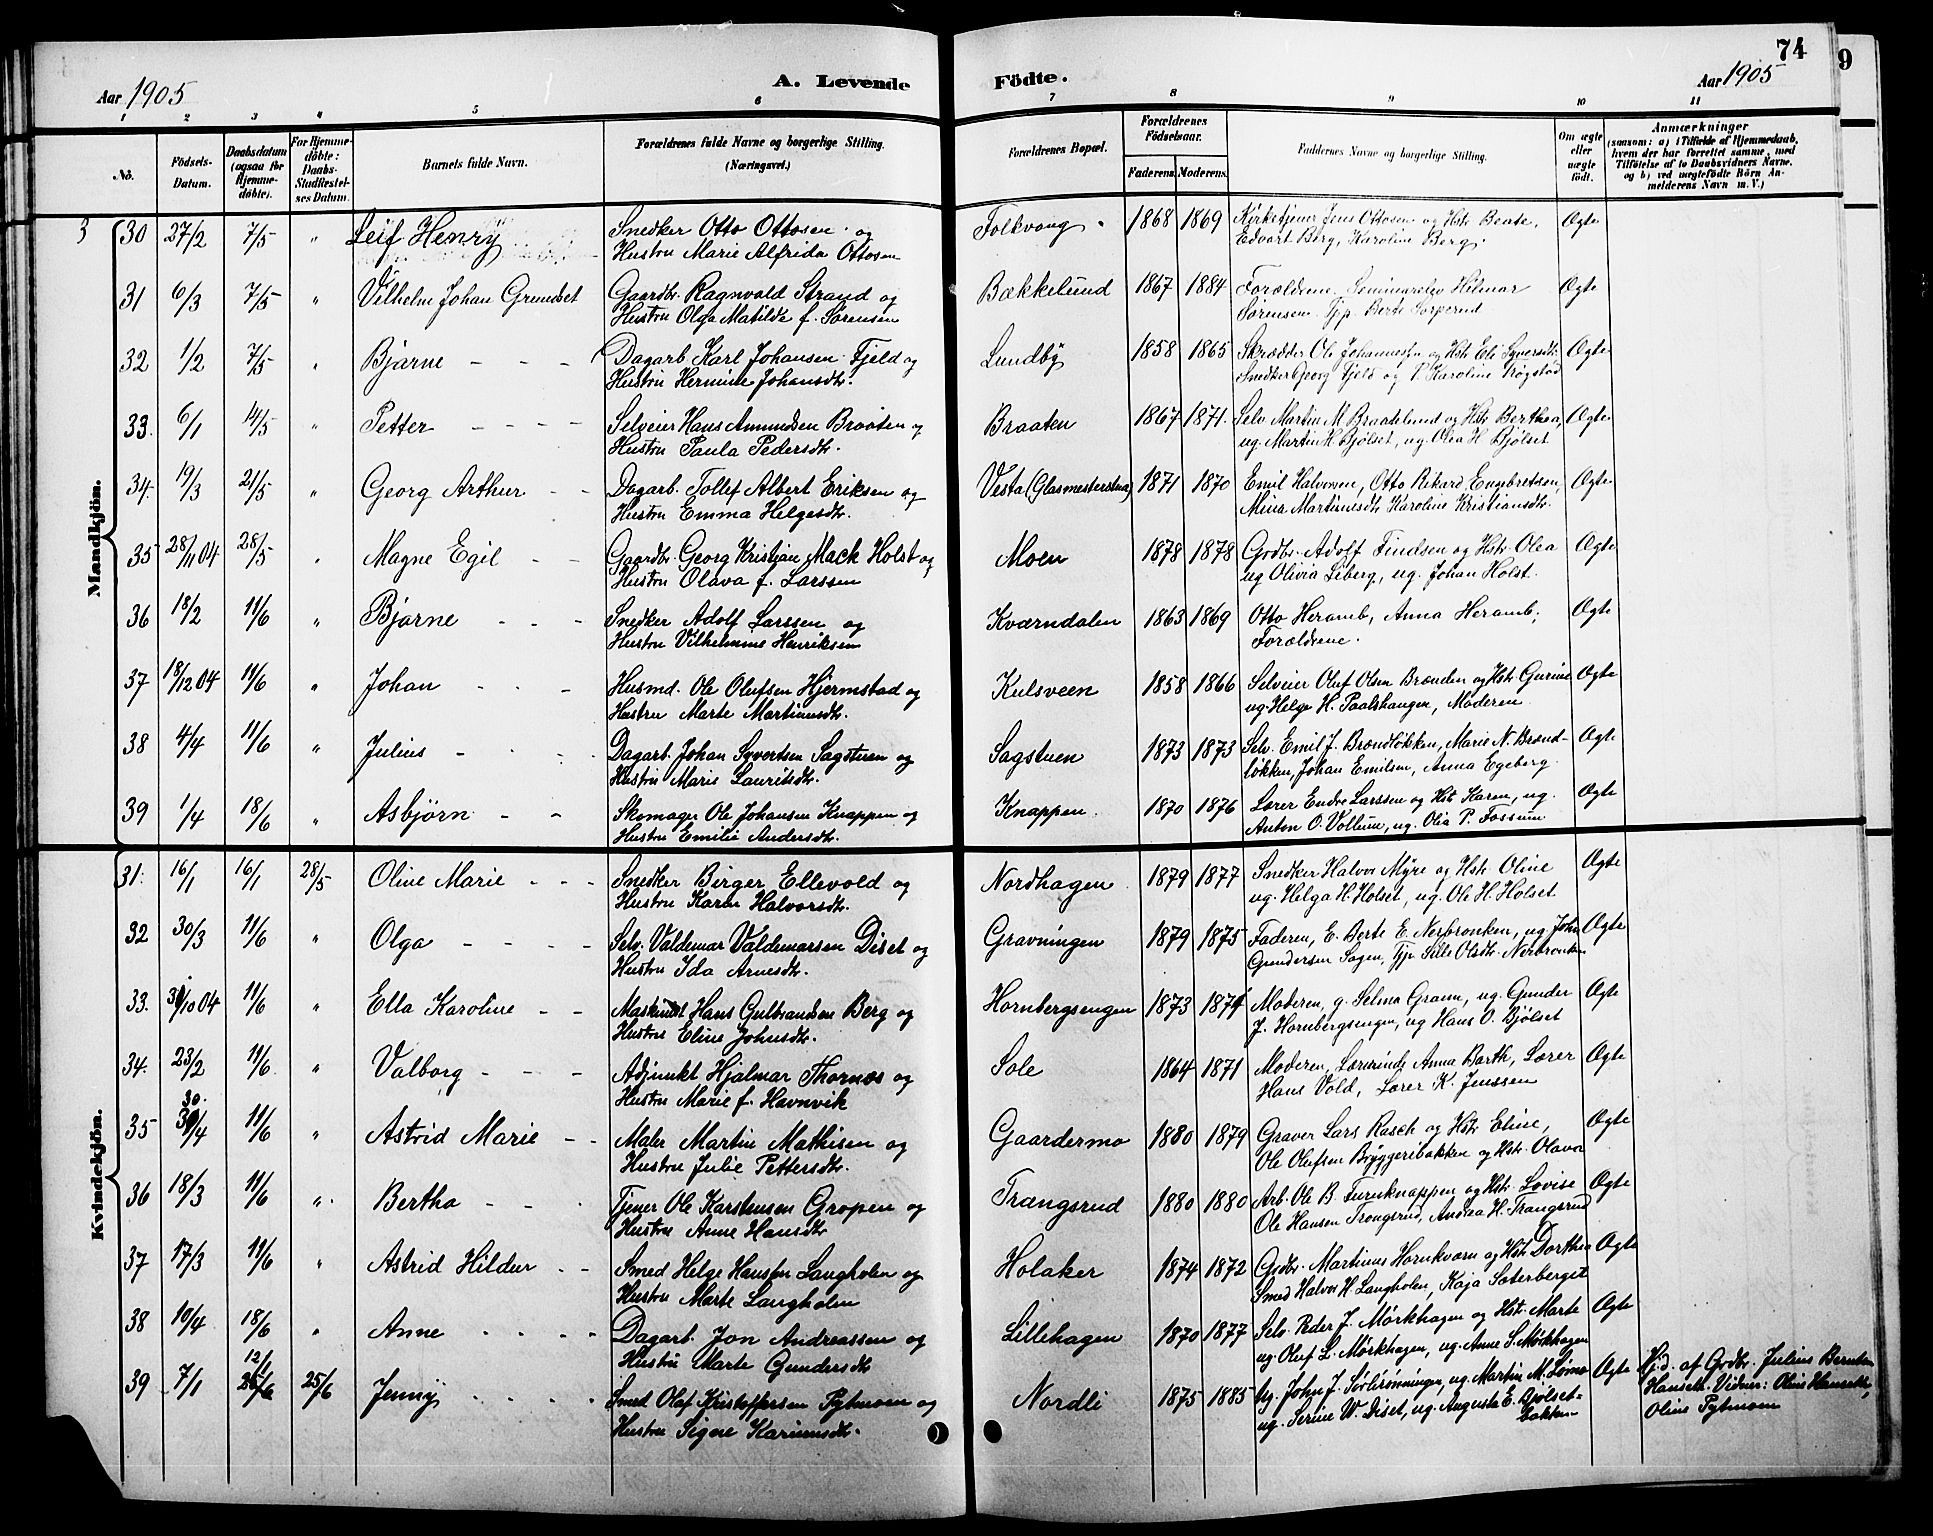 74
9
Aar 1905
A. Levende
Födte.
Aar 1905
1 2 3 4 5 6 7 8 9 10 11
No.
Födsels-
Datum.
Daabsdatum
(ogsaa for
Hjemme-
döbte).
For Hjemme-
döbte:
Daabs-
Stadfæstel-
ses Datum.
Barnets fulde Navn.
Forældrenes fulde Navne og borgerlige Stilling.
(Næringsvei.)
Forældrenes Bopæl.
Forældrenes
Födselsaar.
Faderens. Moderens.
Faddernes Navne og borgerlige Stilling.
Om ægte
eller
uægte
födt.
Anmærkninger
(saasom: a) i Tilfælde af Hjemmedaab,
hvem der har forrettet samme, med
Tilföielse af to Daabsvidners Navne.
og b) ved uægtefödte Börn An-
melderens Navn m. V.)
Mandkjön.
3 30 27/2 7/5 " Leif Henry Snedker Otto Ottosen og Folkvang 1868 1869 Kirketjener Jens Ottosen og Hstr Beate, Ægte
Hustru Marie Alfrida Ottosen Edvart Berg, Karoline Berg.
31 6/3 7/5 " Vilhelm Johan Grundset Gaardbr. Ragnvald Strand og Bækkelund 1867 1884 Forældrene, Seminarelev Hilmar Ægte
Hustru Olga Matilde f. Sørensen Sørensen. Tjp. Berte Torperud
32 1/2 7/5 " Bjarne - - - Dagarb. Karl Johansen Fjeld og Lundby 1858 1865 Skrædder Ole Johannessen og Hstr Eli Syversdtr. Ægte
Hustru Hermine Johansdtr. Snedker Georg Fjeld og P. Karoline Røgstad
33. 6/1 14/5 " Petter - - - - Selveier Hans Amundsen Braaten og Braaten 1867 1871. Selv. Martin M. Braatelund og Hstr Berthea, Ægte
Hustru Paula Pedersdtr. ug. Martin H. Bjølset, ug. Olea H. Bjølset
34. 19/3 21/5 " Georg Arthur - - Dagarb. Tollef Albert Eriksen og Vesta (Glasmesterstua) 1871 1870 Emil Halvorsen, Otto Rikard Engebretsen, Ægte
Hustru Emma Helgesdtr. Mina Martinusdtr Karoline Kristiansdtr.
35 28/11 04 28/5 " Magne Egil - - Gaardbr. Georg Kristian Mack Holst og Moen 1878 1878 Grdbr. Adolf Findsen og Hstr. Olea Ægte
Hustru Olava f. Larssen ug Olivia Liberg, ug. Johan Holst.
36 18/2 11/6 " Bjarne - - - Snedker Adolf Larssen og Kværndalen 1863 1869 Otto Heramb, Anna Heramb, Ægte
Hustru Vilhelmine Henriksen Forældrene.
37 18/12 04 11/6 " Johan - - - Husmd. Ole Olufsen Hjermstad og Kulsveen 1858 1866 Selveier Oluf Olsen Brænden og Hstr Gurine Ægte
Hustru Marte Martinusdtr. ug. Helge H. Paalshaugen, Moderen
38 4/4 11/6 " Julius - - - Dagarb. Johan Syvertsen Sagstuen og Sagstuen 1873 1873 Selv. Emil J. Brændløkken, Marie N. Brænd- Ægte
Hustru Marie Lauritsdtr. løkken, Johan Emilsen, Anna Egeberg.
39 1/4 18/6 " Asbjørn - - Skomager Ole Johansen Knappen og Knappen 1870 1876 Lærer Endre Larssen og Hst Karen, ug. Ægte
Hustru Emilie Andersdtr. Anton O. Vollum, ug. Olia P. Fossum
Kvindekjön.
31. 16/1 16/1 28/5 Oline Marie - - - Snedker Birger Ellevold og Nordhagen 1879 1877 Snedker Halvor Myre og Hstr Oline Ægte
Hustru Karen Halvorsdtr. ug. Helga H. Holset, ug. Ole H. Holset
32 30/3 11/6 " Olga - - - - Selv. Valdemar Valdemarsen Diset og Gravningen 1879 1875 Faderen, E. Berte E. Nerbronken, ug John Ægte
Hustru Ida Arnesdtr. Gundersen Sagen, Tjp. Sille Olsdtr. Nerbronken
33. 31/10 04 11/6 " Ella Karoline - - Maskinist Hans Gulbrandsen Berg og Hornbergsengen 1873 1874 Moderen, g. Selma Gran, ug. Gunder Ægte
Hustru Eline Johnsdtr. J. Hornbergsengen, ug Hans O. Bjølset
34. 23/2 11/6 " Valborg - - - Adjunkt Hjalmar Thornæs og Sole 1864 1871 Moderen, Lærerinde Anna Barth, Lærer Ægte
Hustru Marie f. Havnvik Hans Vold, Lærer K. Jenssen
35 30. 30/4 11/6 " Astrid Marie - - Maler Martin Mathisen og Gaardermo 1880 1879 Graver Lars Rasch og Hstr Eline, Ægte
Hustru Julie Pettersdtr. Ole Olufsen Bryggeribakken og Hstr Olava
36 18/3 11/6 " Bertha - - - Tjener Ole Karstensen Gropen og Trangsrud 1880 1880 Arb. Ole B. Furuknappen og Hstr. Lovise Ægte
Hustru Anne Hansdtr Ole Hansen Trongsrud, Andrea H. Trangsrud
37 17/3 11/6 " Astrid Hildur - - Smed Helge Hansen Langholen og Holaker 1874 1872 Grdbr. Martinus Hornkværn og Hstr Dorthea Ægte
Hustru Marte Langholen Smed Halvor H. Langholen, Kaja Sæterberget
38 10/4 18/6 " Anne - - - - Dagarb. Jon Andreassen og Lillehagen 1870 1877 Selv. Peder J. Mørkhagen og Hstr. Marte Ægte
Hustru Marte Gundersdtr ug. Oluf L. Mørkhagen, ug. Anne S. Mørkhagen
39 7/1 12/1 25/6 25/6 Jenny - - - - Smed Olaf Kristoffersen Pytmoen og Nordli 1875 1885 ug. John J. Sørlirønningen, ug. Martin M. Lømo Ægte Hj.d. af Grdbr. Julius Berntsen
Hustru Signe Kariusdtr. ug. Serine W. Diset, ug. Auguste E. Bjølset- Hanseth. Vidner: Oline Hanseth,
bakken Olius Pytmoen